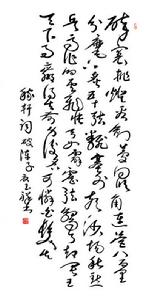 醉裏挑燈看劍夢回吹角連營八百里
分麾下炙五十弦翻塞外聲沙場秋點
兵馬作的盧飛快弓如霹靂弦驚了卻君王
天下事贏得生前身後名可憐白髮生
稼軒詞破陣子